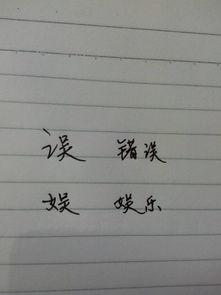 误 错误
娱 娱乐